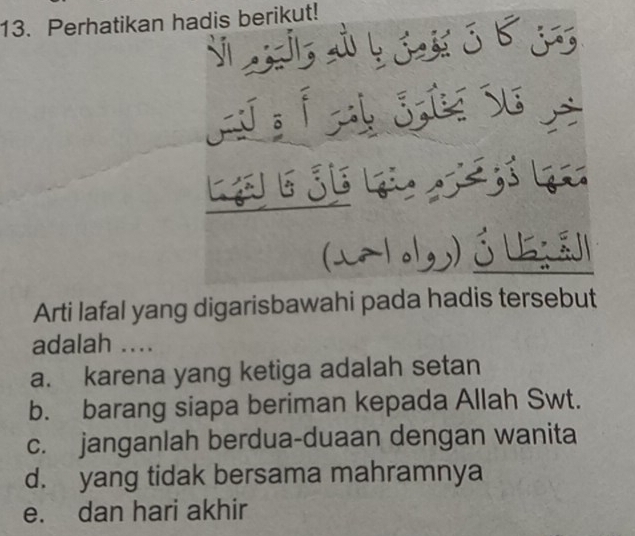 13. Perhatikan hadis berikut!
وَمَنْ كَا نَ يُؤْمِنُ بِا للهِ وَالْيَوْمِ الْاَ
خِرِ فَلاَ يَخْلُوَنَّ بِأمْرَ أَ ةٍ لَيْسَ
مَعَهَا ذُوْمَحْرَمٍ مِنْهَا فَأِنَّ ثَا لِثَهُمَا
الشَّيْطَا نُ (رواه احمد)
Arti lafal yang digarisbawahi pada hadis tersebut
adalah ....
a. karena yang ketiga adalah setan
b. barang siapa beriman kepada Allah Swt.
c. janganlah berdua-duaan dengan wanita
d. yang tidak bersama mahramnya
e. dan hari akhir